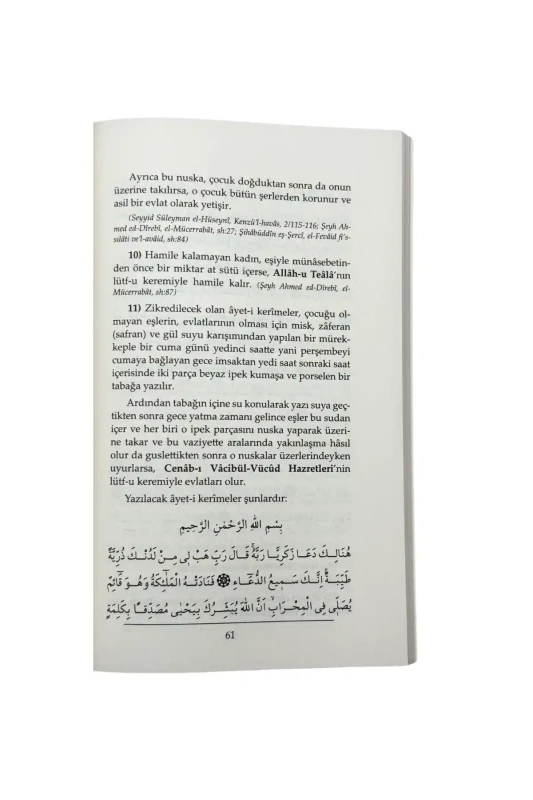 Ayrıca bu nuska, çocuk doğduktan sonra da onun
üzerine takılırsa, o çocuk bütün şerlerden korunur ve
asil bir evlat olarak yetişir.
(Seyyid Süleyman el-Hüseynî, Kenzü'l-havâs, 2/115-116; Şeyh Ah-
med ed-Dîrebî, el-Mücerrabât, sh:27; Şihâbüddîn eş-Şercî, el-Fevâid fi's-
sılâti ve'l-avâid, sh:84)
10) Hamile kalamayan kadın, eşiyle münâsebetin-
den önce bir miktar at sütü içerse, Allâh-u Teâlâ'nın
lütf-u keremiyle hamile kalır. (Şeyh Ahmed ed-Dîrebî, el-
Mücerrabât, sh:87)
11) Zikredilecek olan âyet-i kerîmeler, çocuğu ol-
mayan eşlerin, evlatlarının olması için misk, zâferan
(safran) ve gül suyu karışımından yapılan bir mürek-
keple bir cuma günü yedinci saatte yani perşembeyi
cumaya bağlayan gece imsaktan yedi saat sonraki saat
içerisinde iki parça beyaz ipek kumaşa ve porselen bir
tabağa yazılır.
Ardından tabağın içine su konularak yazı suya geç-
tikten sonra gece yatma zamanı gelince eşler bu sudan
içer ve her biri o ipek parçasını nuska yaparak üzeri-
ne takar ve bu vaziyette aralarında yakınlaşma hâsıl
olur da guslettikten sonra o nuskalar üzerlerindeyken
uyurlarsa, Cenâb-ı Vâcibül-Vücûd Hazretleri'nin
lütf-u keremiyle evlatları olur.
Yazılacak âyet-i kerîmeler şunlardır:
بِسْمِ اللّٰهِ الرَّحْمٰنِ الرَّحِيمِ
هُنَالِكَ دَعَا زَكَرِيَّا رَبَّهُ قَالَ رَبِّ هَبْ لِى مِنْ لَدُنْكَ ذُرِّيَّةً
طَيِّبَةً اِنَّكَ سَمِيعُ الدُّعَٓاءِ ۞ فَنَادَتْهُ الْمَلٰٓئِكَةُ وَهُوَ قَٓائِمٌ
يُصَلِّى فِى الْمِحْرَابِ اَنَّ اللّٰهَ يُبَشِّرُكَ بِيَحْيٰى مُصَدِّقًا بِكَلِمَةٍ
61